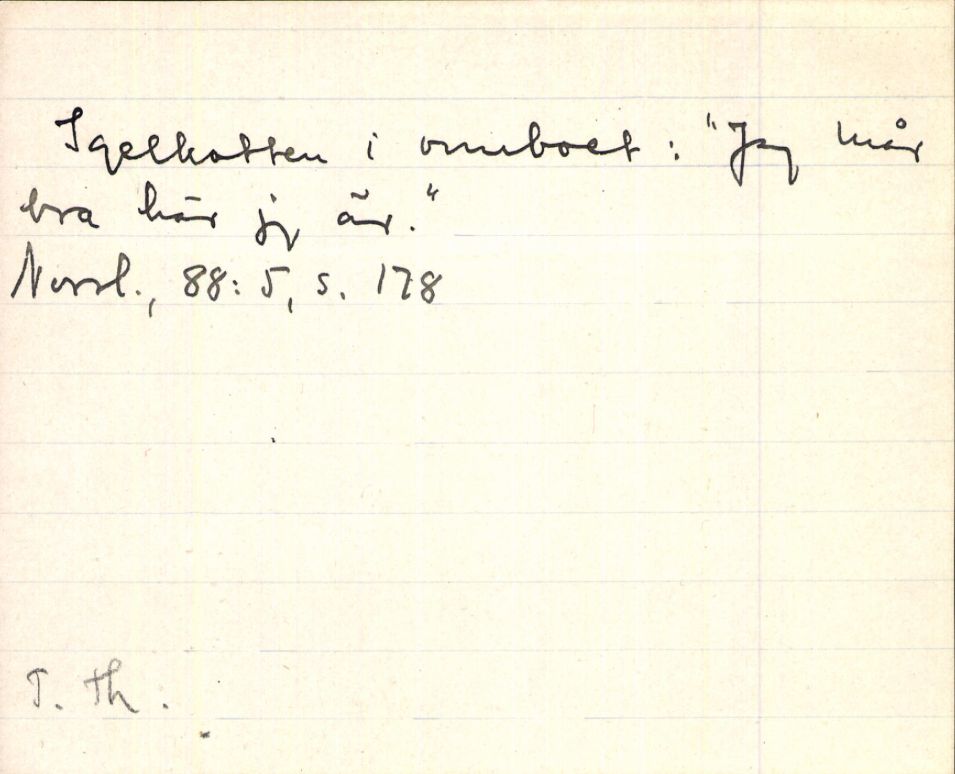 Igelkotten i ormboet: "Jag mår
bra här jag är."
Norrl., 88:5, s. 178
T. Th.